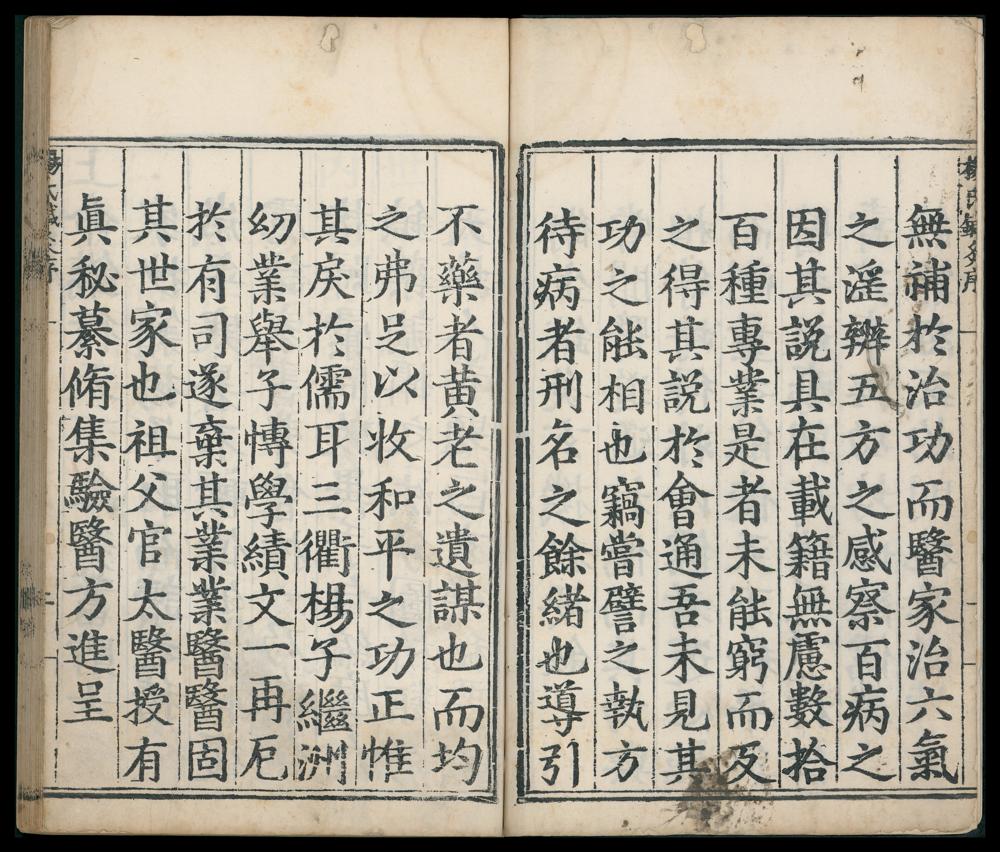 無補於治功而醫家治六氣
之淫辨五方之感察百病之
因其説具在載籍無慮數拾
百種專業是者未能窮而反
之得其説於會通吾未見其
功之能相也竊嘗譬之執方
待病者刑名之餘緒也導引
不藥者黄老之遺謀也而均
之弗足以收和平之功正惟
其戾於儒耳三衢楊子繼洲
幼業舉子慱學績文一再厄
於有司遂棄其業業醫醫固
其世家也祖父官太醫授有
真秘纂脩集驗醫方進呈